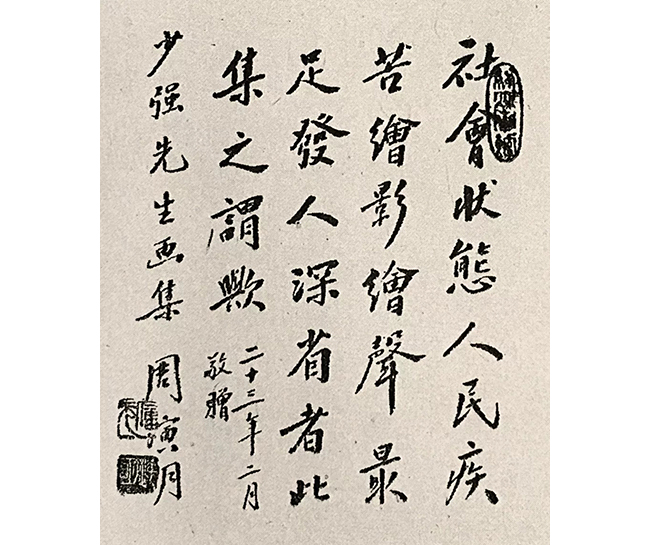 社會狀態人民疾
苦繪影繪聲最
足發人深省者此
集之謂歟
二十三年二月
敬贈
少强先生画集
周寅月